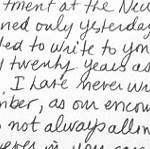 tment at the New
ned only yesterday
ed to write to you
twenty years as
I have never wr
mber, as our encou
not always allow
ever in your case